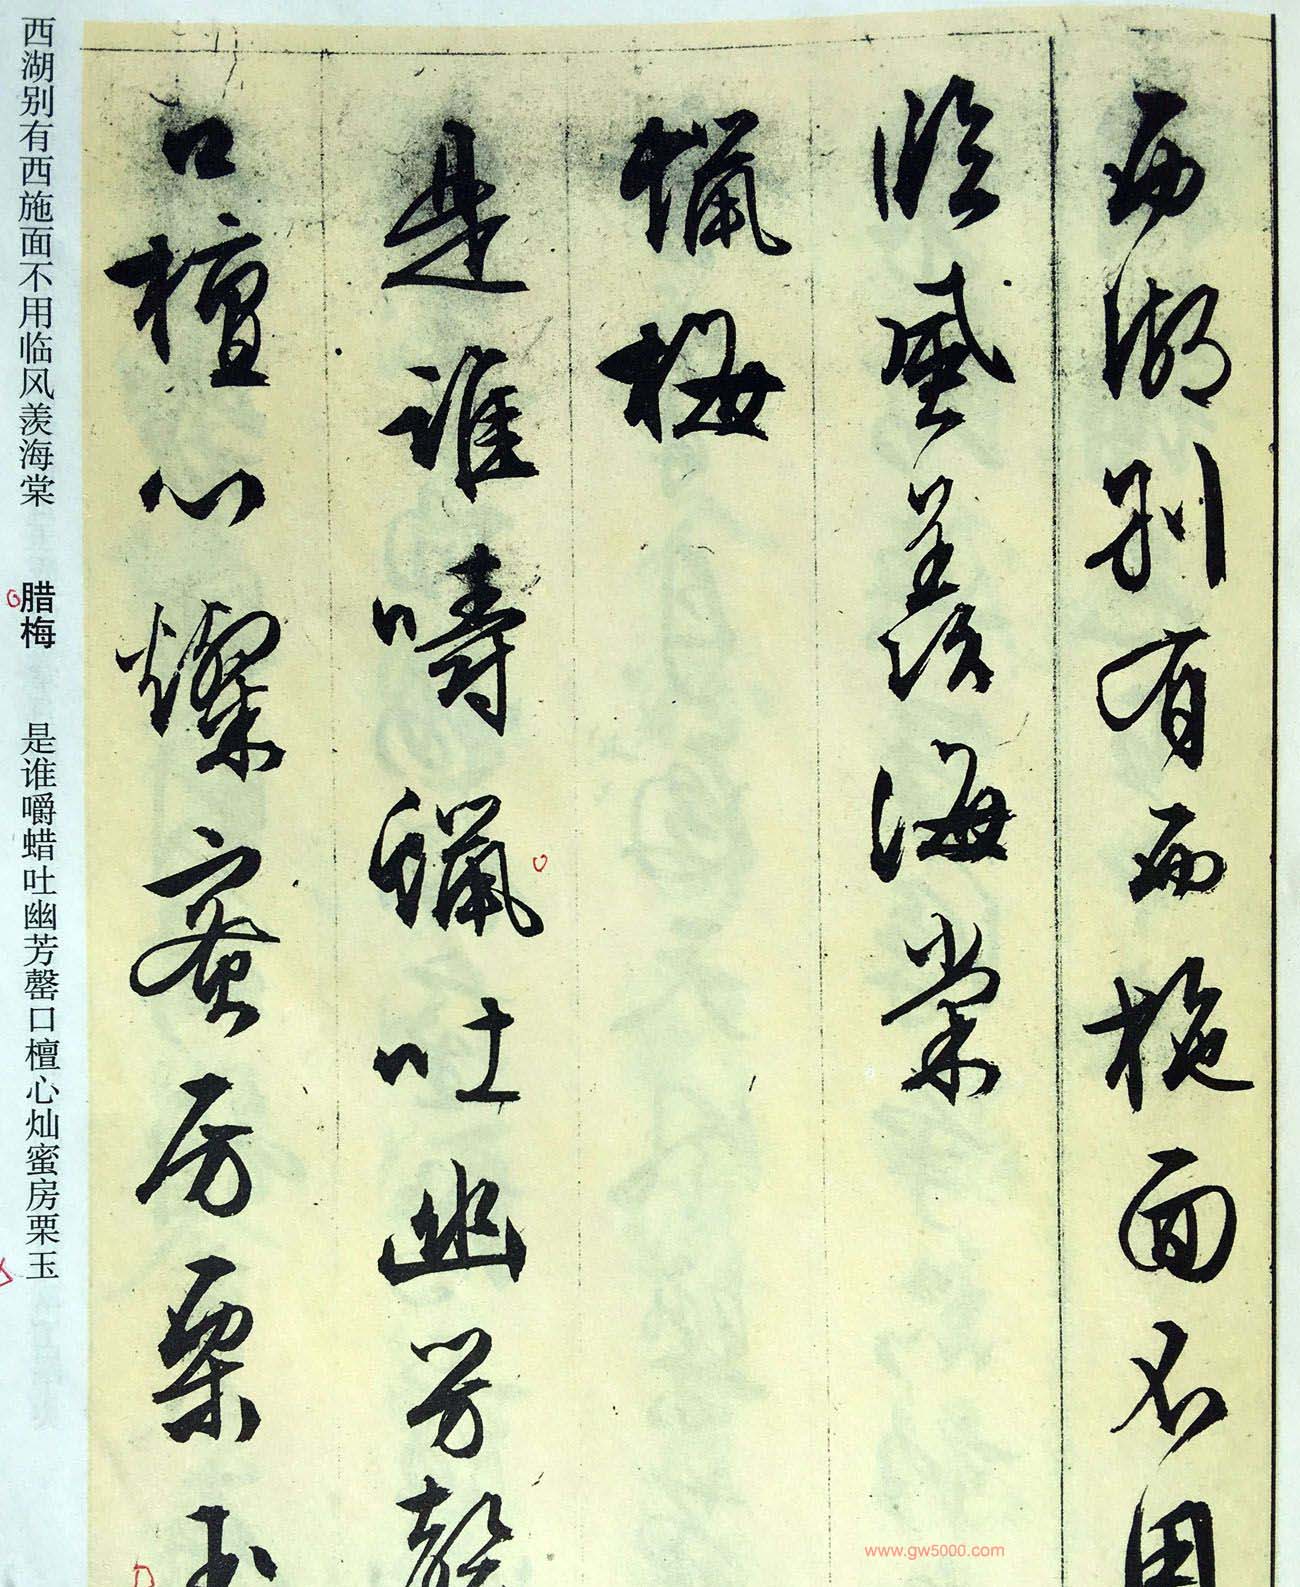 西湖别有西施面不用
临风羡海棠
蜡梅
是谁嚼蜡吐幽芳磬
口檀心燦蜜房栗玉
西湖别有西施面不用临风羡海棠 腊梅 是谁嚼蜡吐幽芳罄口檀心灿蜜房栗玉
www.gw5000.com